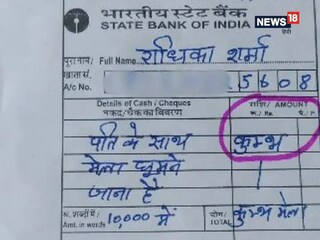 NEWS18
भारतीय स्टेट बैंक
STATE BANK OF INDIA
पूरा नाम/ Full Name राधिका शर्मा
खाता सं.
A/c No. 5 6 0 8
Details of Cash / Cheques राशि/ AMOUNT
नकद/चैक का विवरण रू./ Rs. पै./ P.
पति के साथ कुम्भ
मेला घूमने
जाना है
रू. शब्दों में 10,000 में योग/ कुम्भ मेला
Amt. in words TOTAL